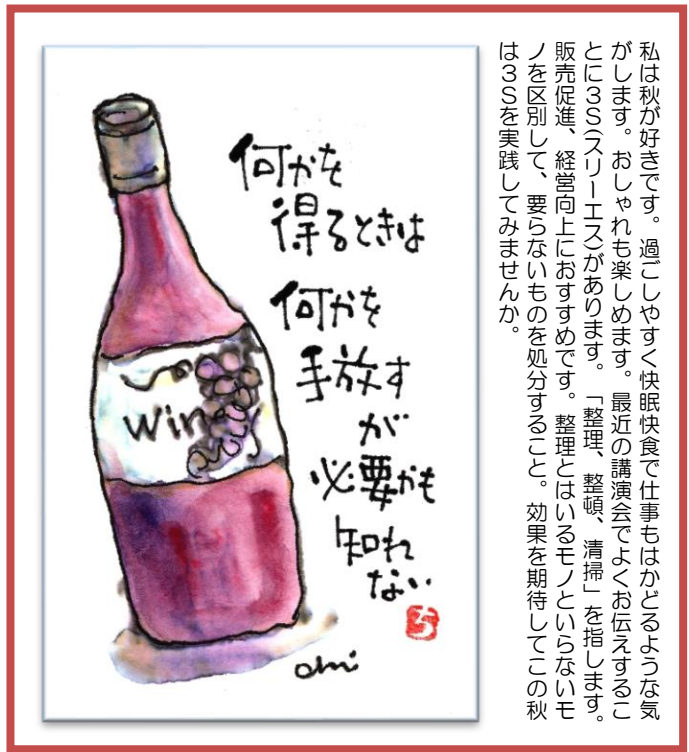 私は秋が好きです。過ごしやすく快眠快食で仕事もはかどるような気
がします。おしゃれも楽しめます。最近の講演会でよくお伝えするこ
とに3S(スリーエス)があります。「整理、整頓、清掃」を指します。
販売促進、経営向上におすすめです。整理とはいるモノといらないモ
ノを区別して、要らないものを処分すること。効果を期待してこの秋
は3Sを実践してみませんか。
何かを
得るときは
何かを
手放す
が
必要かも
知れ
ない
wine